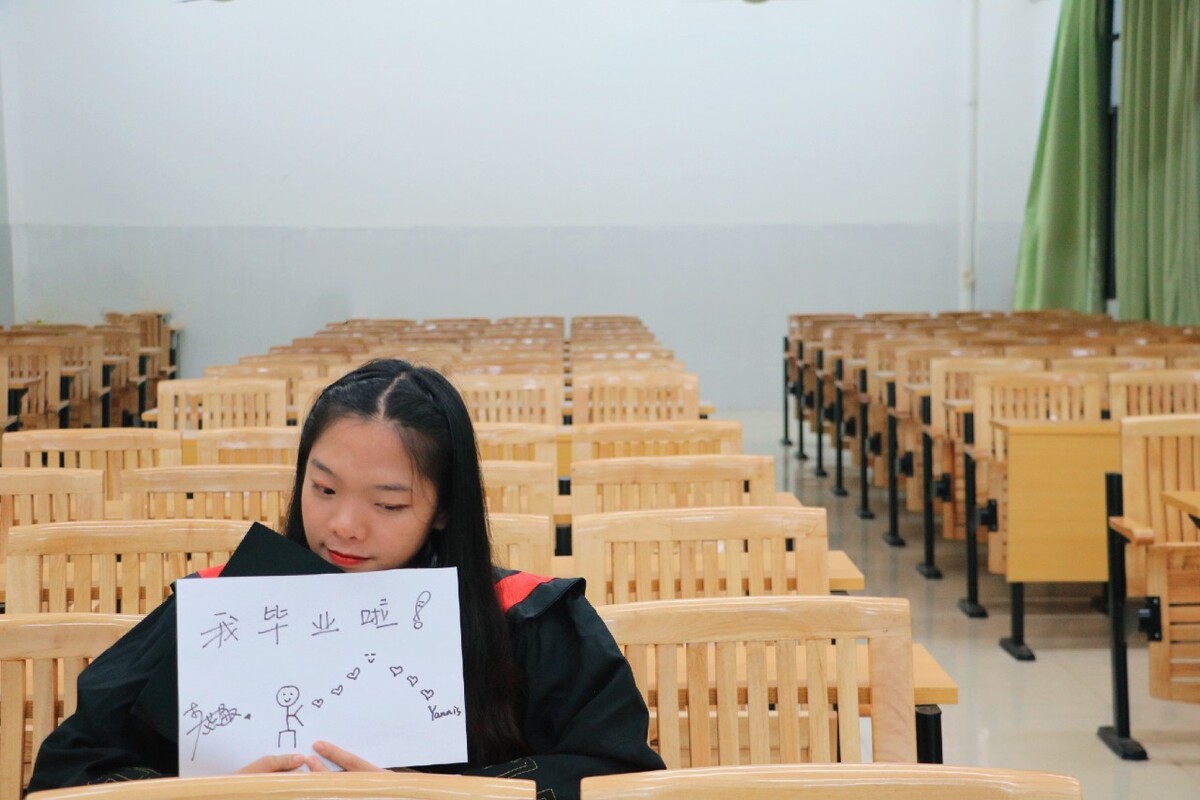 我毕业啦!
Yannis